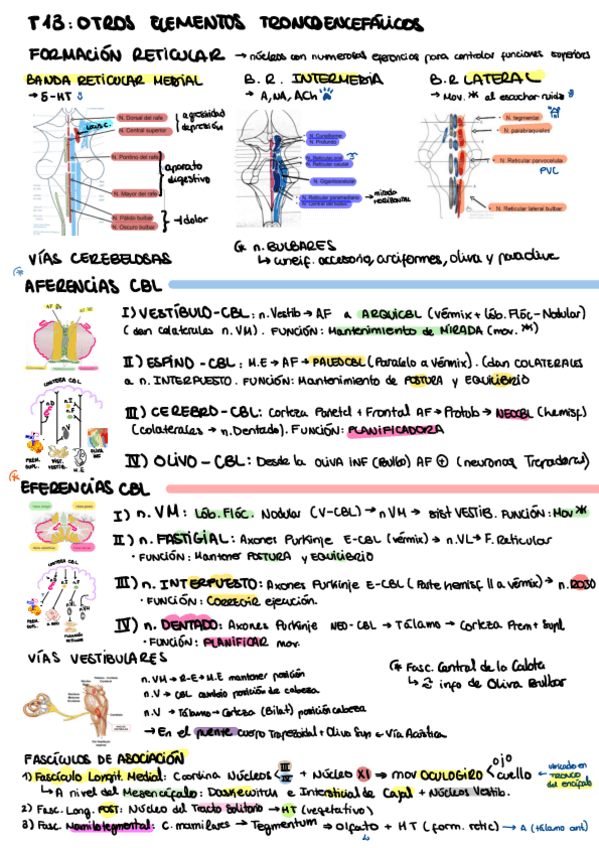 T13: OTROS ELEMENTOS TRONCOENCEFÁLICOS
FORMACIÓN RETICULAR → núcleos con numerosas eferencias para controlar funciones superiores
BANDA RETICULAR MEDIAL
→ 5-HT
B.R. INTERMEDIA
→ A, NA, ACh
B.R LATERAL
→ Mov. al escuchar ruido
N. Dorsal del rafe
N. Central superior
Locus C.
agresividad
depresión
N. Pontino del rafe
N. Mayor del rafe
aparato
digestivo
N. Pálido bulbar
N. Oscuro bulbar
dolor
N. Cuneiforme
N. Pretunés
N. Reticular oral
N. Reticular caudal
N. Gigantocelular
N. Reticular paramediano
N. Central del bulbo
mirada
horizontal
N. tegmental
N. parabraquiales
N. Reticular parvocelular
PVC
N. Reticular lateral bulbar
n. BULBARES
↳ cuneif. accesorio, arciformes, oliva y paraolivar
VÍAS CEREBELOSAS
AFERENCIAS CBL
I) VESTÍBULO-CBL: n. Vestib → AF a ARQUICBL (Vérmix + Lób. Flóc-Nodular)
(dan colaterales n. VM). FUNCIÓN: Mantenimiento de MIRADA (mov.)
II) ESPINO-CBL: M.E → AF → PALEOCBL (Paralelo a Vérmix). (dan COLATERALES
a n. INTERPUESTO. FUNCIÓN: Mantenimiento de POSTURA y EQUILIBRIO
III) CEREBRO-CBL: Corteza Parietal + Frontal AF → Protub → NEOCBL (hemisf.)
(colaterales → n. Dentado). FUNCIÓN: PLANIFICADORA
IV) OLIVO-CBL: Desde la OLIVA INF (Bulbo) AF ⊕ (neuronas Trepadoras)
EFERENCIAS CBL
I) n. VM: Lób. Flóc. Nodular (V-CBL) → n VM → sist VESTIB. FUNCIÓN: Mov
II) n. FASTIGIAL: Axones Purkinje E-CBL (vérmix) → n. VL → F. Reticular
· FUNCIÓN: Mantener POSTURA y EQUILIBRIO
III) n. INTERPUESTO: Axones Purkinje E-CBL (Parte hemisf. II a vérmix) → n. ROJO
· FUNCIÓN: CORREGIR ejecución.
IV) n. DENTADO: Axones Purkinje NEO-CBL → Tálamo → Corteza Prem + Supl
· FUNCIÓN: PLANIFICAR mov.
VÍAS VESTIBULARES
n. VM → R-E → M.E mantener posición
n. V → CBL cambio posición de cabeza
n. V → Tálamo → Corteza (Bilat) posición cabeza
→ En el puente cuerpo Trapezoidal + Oliva Sup ← Vía Acústica
Fasc. Central de la Calota
↳ info de Oliva Bulbar
FASCÍCULOS DE ASOCIACIÓN
1) Fascículo Longit. Medial: Coordina Núcleos III IV + Núcleo XI → mov OCULOGIRO ojo cuello ← ubicado en TRONCO del encéfalo
↳ A nivel del Mesencéfalo: Darkewitus e Intersticial de Cajal + Núcleos Vestib.
2) Fasc. Long. POST: Núcleo del Tracto Solitario → HT (vegetativo)
3) Fasc. Mamilotegmental: C. mamilares → Tegmentum → Olfato + HT (form. retic) → A (tálamo ant)